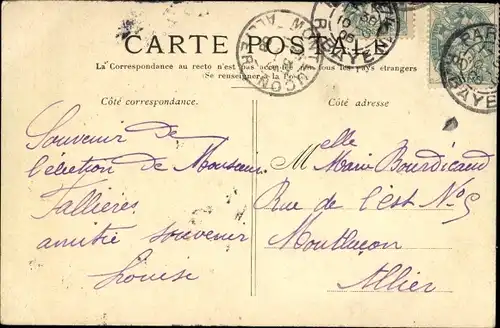 CARTE POSTALE
La Correspondance au recto n'est pas acceptée par tous les pays étrangers
Se renseigner à la Poste
Côté correspondance.
Côté adresse
Souvenir de
l'élection de Monsieur
Fallières
amitié souvenir
Louise
Melle Marie Bourdicaud
Rue de l'est No 5
Montluçon
Allier
MONTLUÇON
ALLIER
PARIS